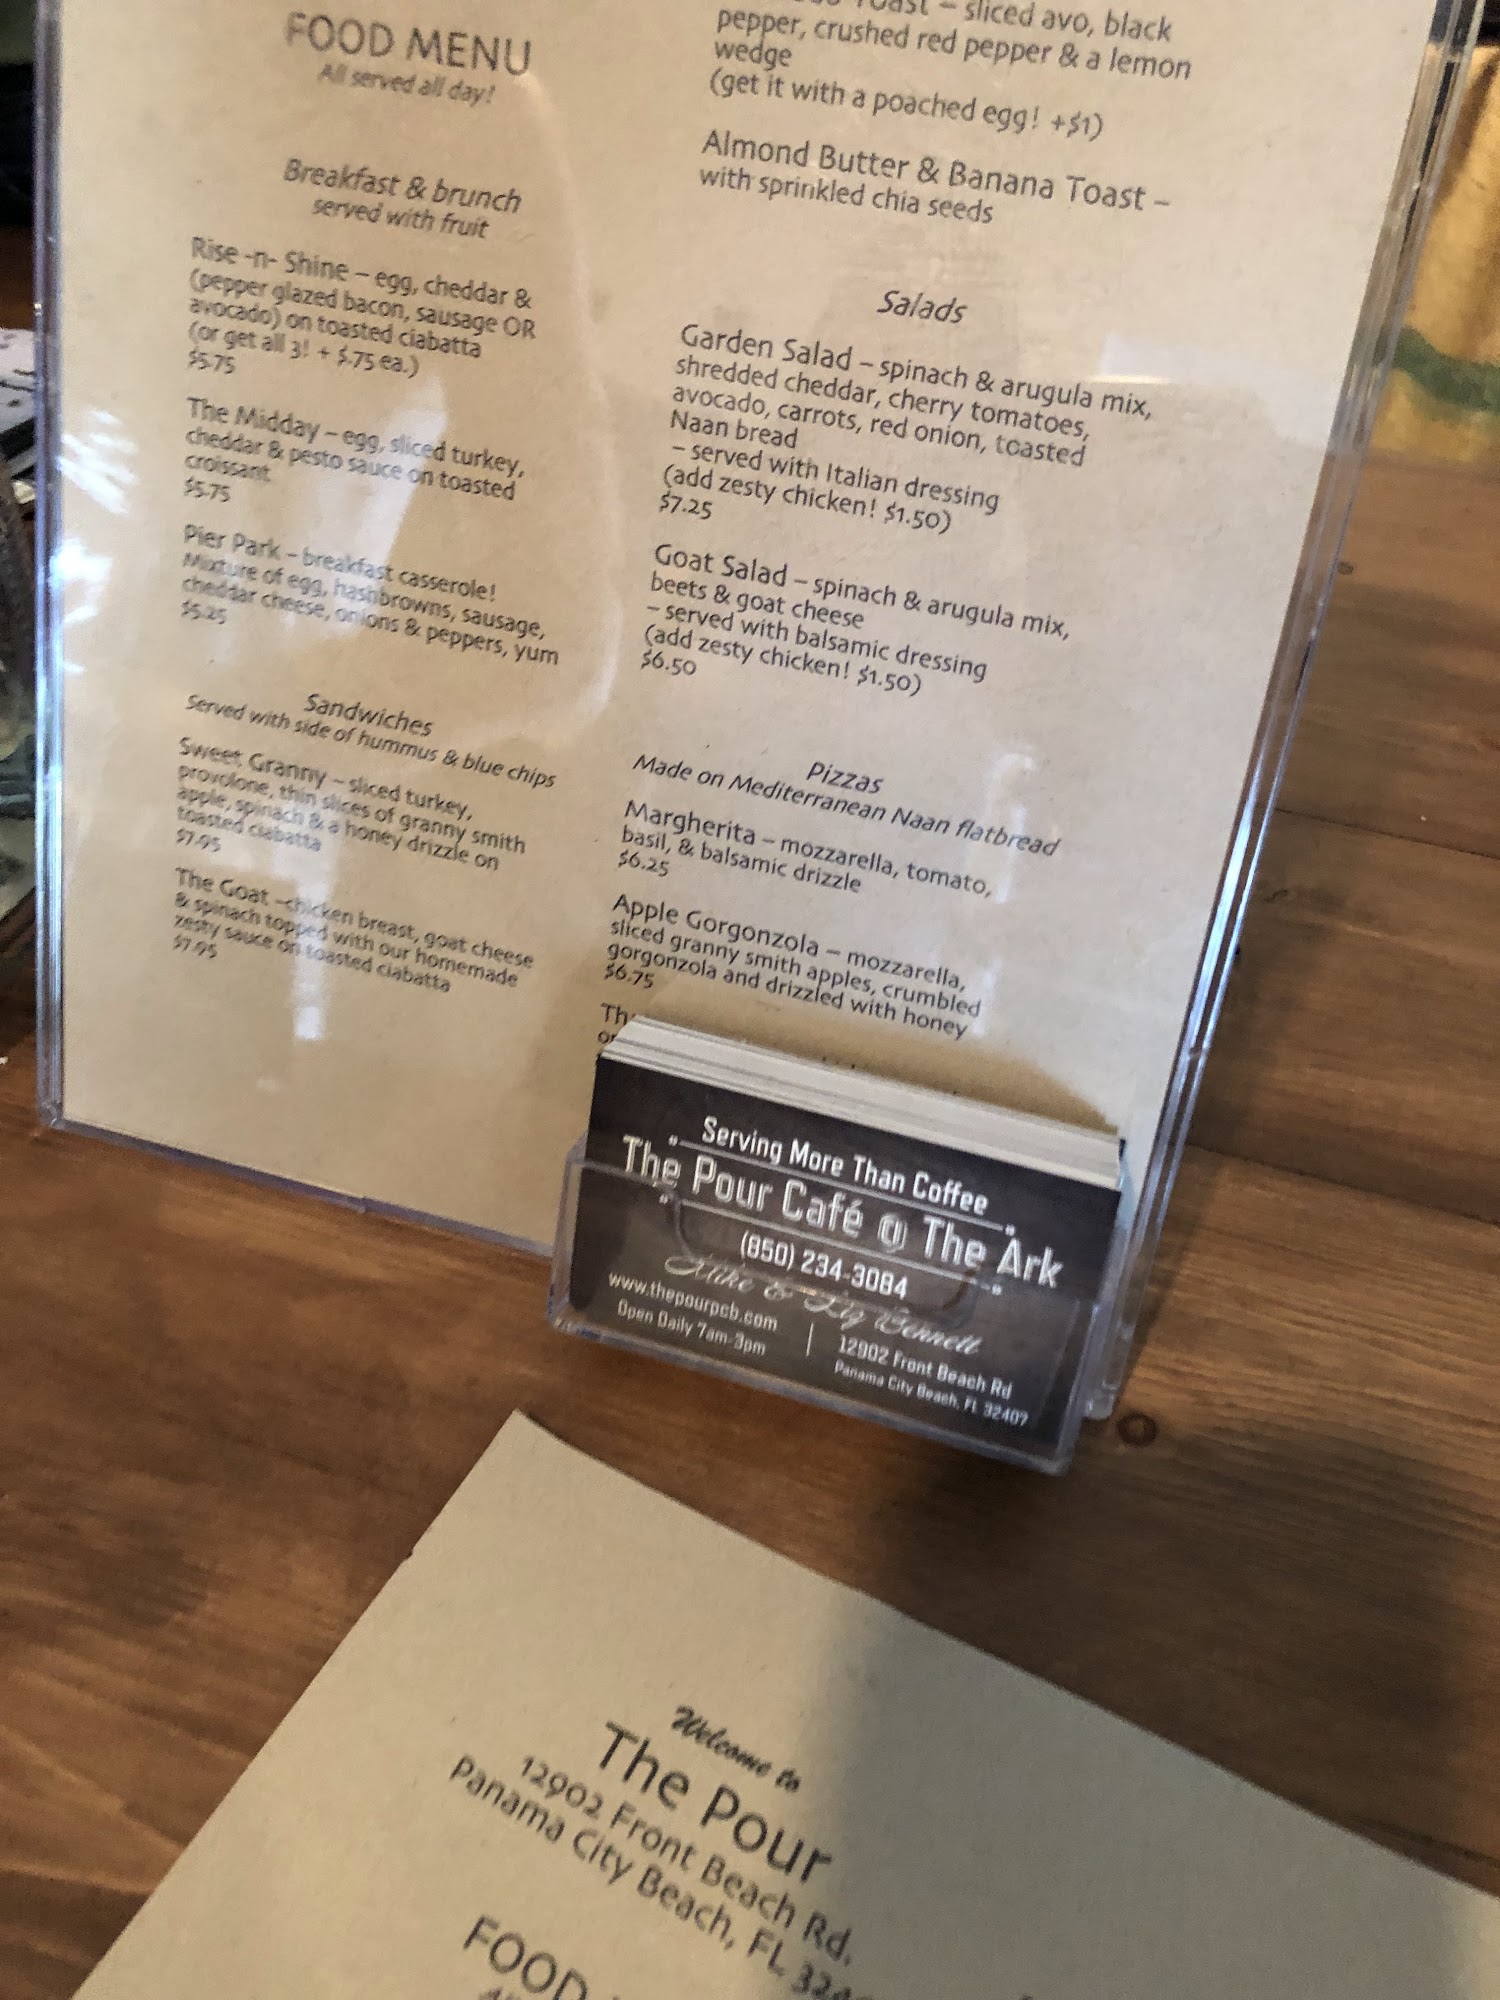 FOOD MENU
All served all day!
Breakfast & brunch
served with fruit
Rise -n- Shine – egg, cheddar &
(pepper glazed bacon, sausage OR
avocado) on toasted ciabatta
(or get all 3! + $.75 ea.)
$5.75
The Midday – egg, sliced turkey,
cheddar & pesto sauce on toasted
croissant
$5.75
Pier Park – breakfast casserole!
Mixture of egg, hashbrowns, sausage,
cheddar cheese, onions & peppers, yum
$5.25
Sandwiches
Served with side of hummus & blue chips
Sweet Granny – sliced turkey,
provolone, thin slices of granny smith
apple, spinach & a honey drizzle on
toasted ciabatta
$7.95
The Goat –chicken breast, goat cheese
& spinach topped with our homemade
zesty sauce on toasted ciabatta
$7.95
Toast – sliced avo, black
pepper, crushed red pepper & a lemon
wedge
(get it with a poached egg! +$1)
Almond Butter & Banana Toast –
with sprinkled chia seeds
Salads
Garden Salad – spinach & arugula mix,
shredded cheddar, cherry tomatoes,
avocado, carrots, red onion, toasted
Naan bread
– served with Italian dressing
(add zesty chicken! $1.50)
$7.25
Goat Salad – spinach & arugula mix,
beets & goat cheese
– served with balsamic dressing
(add zesty chicken! $1.50)
$6.50
Pizzas
Made on Mediterranean Naan flatbread
Margherita – mozzarella, tomato,
basil, & balsamic drizzle
$6.25
Apple Gorgonzola – mozzarella,
sliced granny smith apples, crumbled
gorgonzola and drizzled with honey
$6.75
Serving More Than Coffee
"The Pour Café @ The Ark"
(850) 234-3084
Mike & Liz Bennett
www.thepourpcb.com
Open Daily 7am-3pm
12902 Front Beach Rd
Panama City Beach, FL 32407
Welcome to
The Pour
12902 Front Beach Rd.
Panama City Beach, FL
FOOD